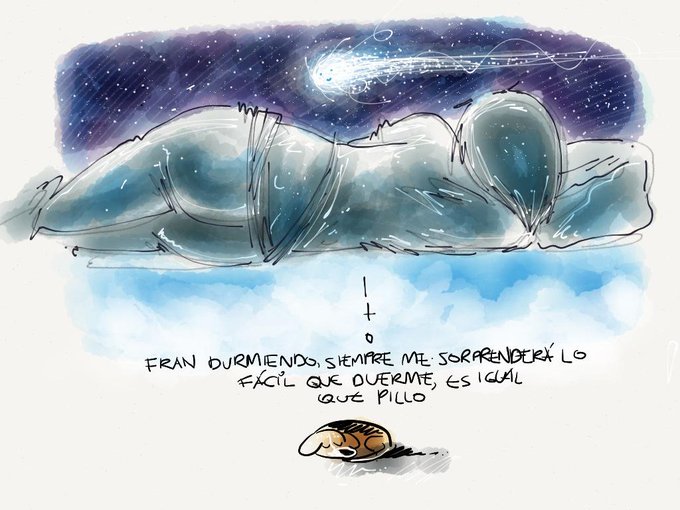 FRAN DURMIENDO, SIEMPRE ME SORPRENDERÁ LO
FÁCIL QUE DUERME, ES IGUAL
QUE PILLO